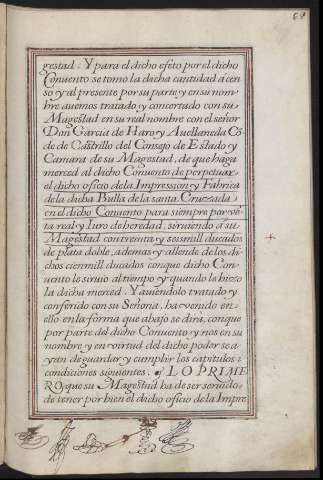 69
gestad: Y para el dicho efeto por el dicho
Convento se tomo la dicha cantidad à cen
so y al presente por su parte y en su nom
bre avemos tratado y concertado con su
Magestad en su real nombre con el señor
Don Garcia de Haro y Avellaneda Cõ
de de Castrillo del Consejo de Estado y
Camara de su Magestad, de que haga
merced al dicho Convento de perpetuar
el dicho oficio de la Impression y Fabrica
de la dicha Bulla de la santa Cruzada
en el dicho Convento para siempre por vẽ
ta real y Iuro de heredad, sirviendo á su
Magestad con treinta y seis mill ducados
de plata doble, ademas y allende de los di
chos cien mill ducados con que dicho Con
vento le sirvio al tiempo y quando la hizo
la dicha merced. Y aviéndolo tratado y
conferido con su Señoria, ha venido en
ello en la forma que abajo se dirá, con que
por parte del dicho Convento y nos en su
nombre y en virtud del dicho poder se a
yan de guardar y cumplir los capitulos i
condiciones siguientes. LO PRIME
RO, que su Magestad ha de ser servido
de tener por bien el dicho oficio de la Impre